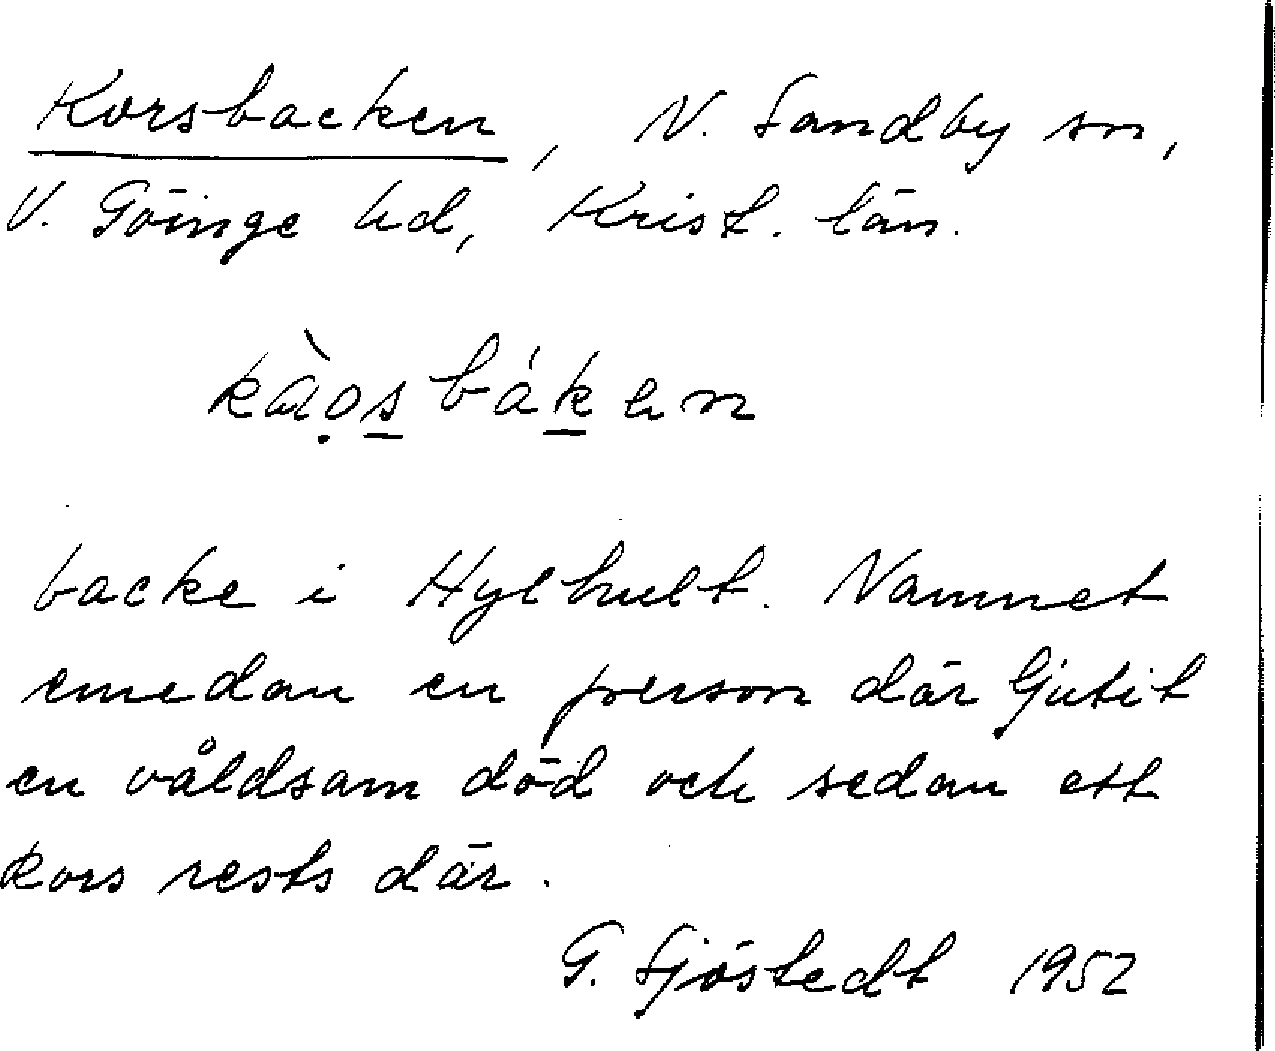 Korsbacken, N. Sandby sn,
V. Göinge hd, Krist. län.
backe i Hylhult. Namnet
emedan en person där ljutit
en våldsam död och sedan ett
kors rests där.
G. Sjöstedt 1952